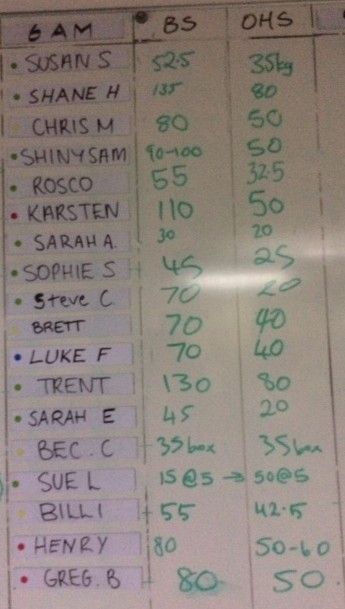 6AM BS OHS
SUSAN S 52.5 35kg
SHANE H 135 80
CHRIS M 80 50
SHINYSAM 90-100 50
ROSCO 55 32.5
KARSTEN 110 50
SARAH A. 30 20
SOPHIE S 45 25
Steve C 70 20
BRETT 70 40
LUKE F 70 40
TRENT 130 80
SARAH E 45 20
BEC. C 35 box 35 box
SUE L 15@5 → 50@5
BILLI 55 42.5
HENRY 80 50-60
GREG. B 80 50